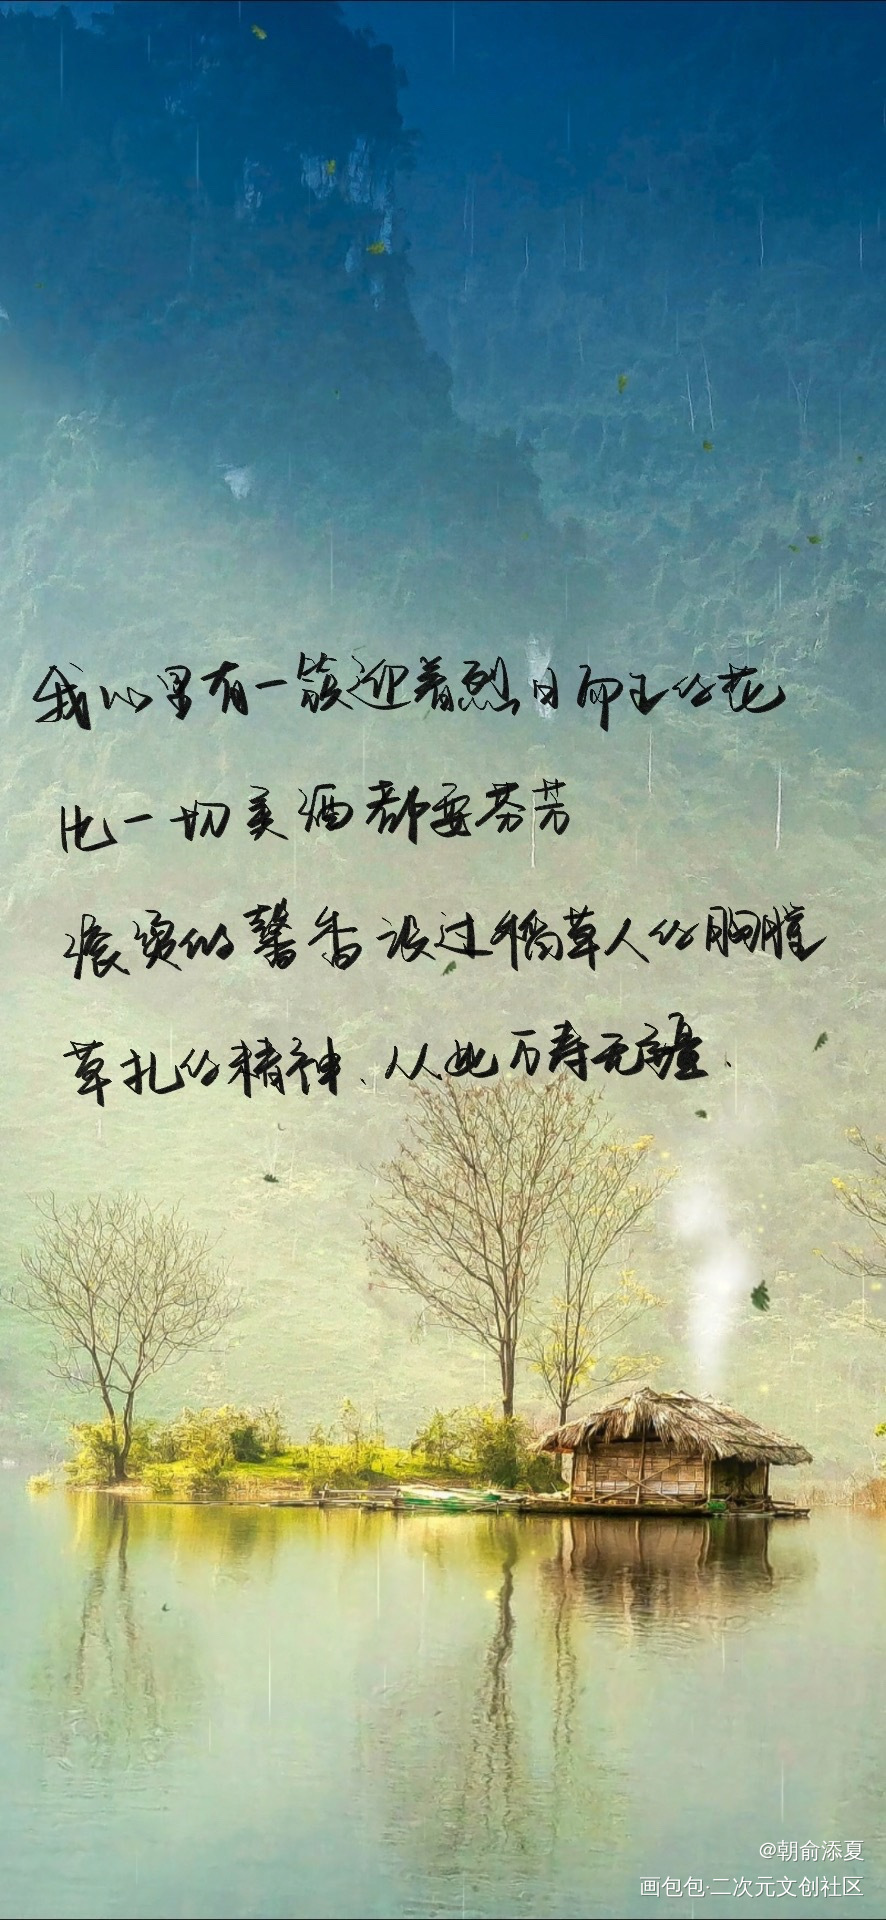 我心里有一簇迎着烈日而生的花
比一切美酒都要芬芳
滚烫的馨香淹过稻草人的胸膛
草扎的精神、从此万寿无疆.
@朝俞添夏
画包包·二次元文创社区